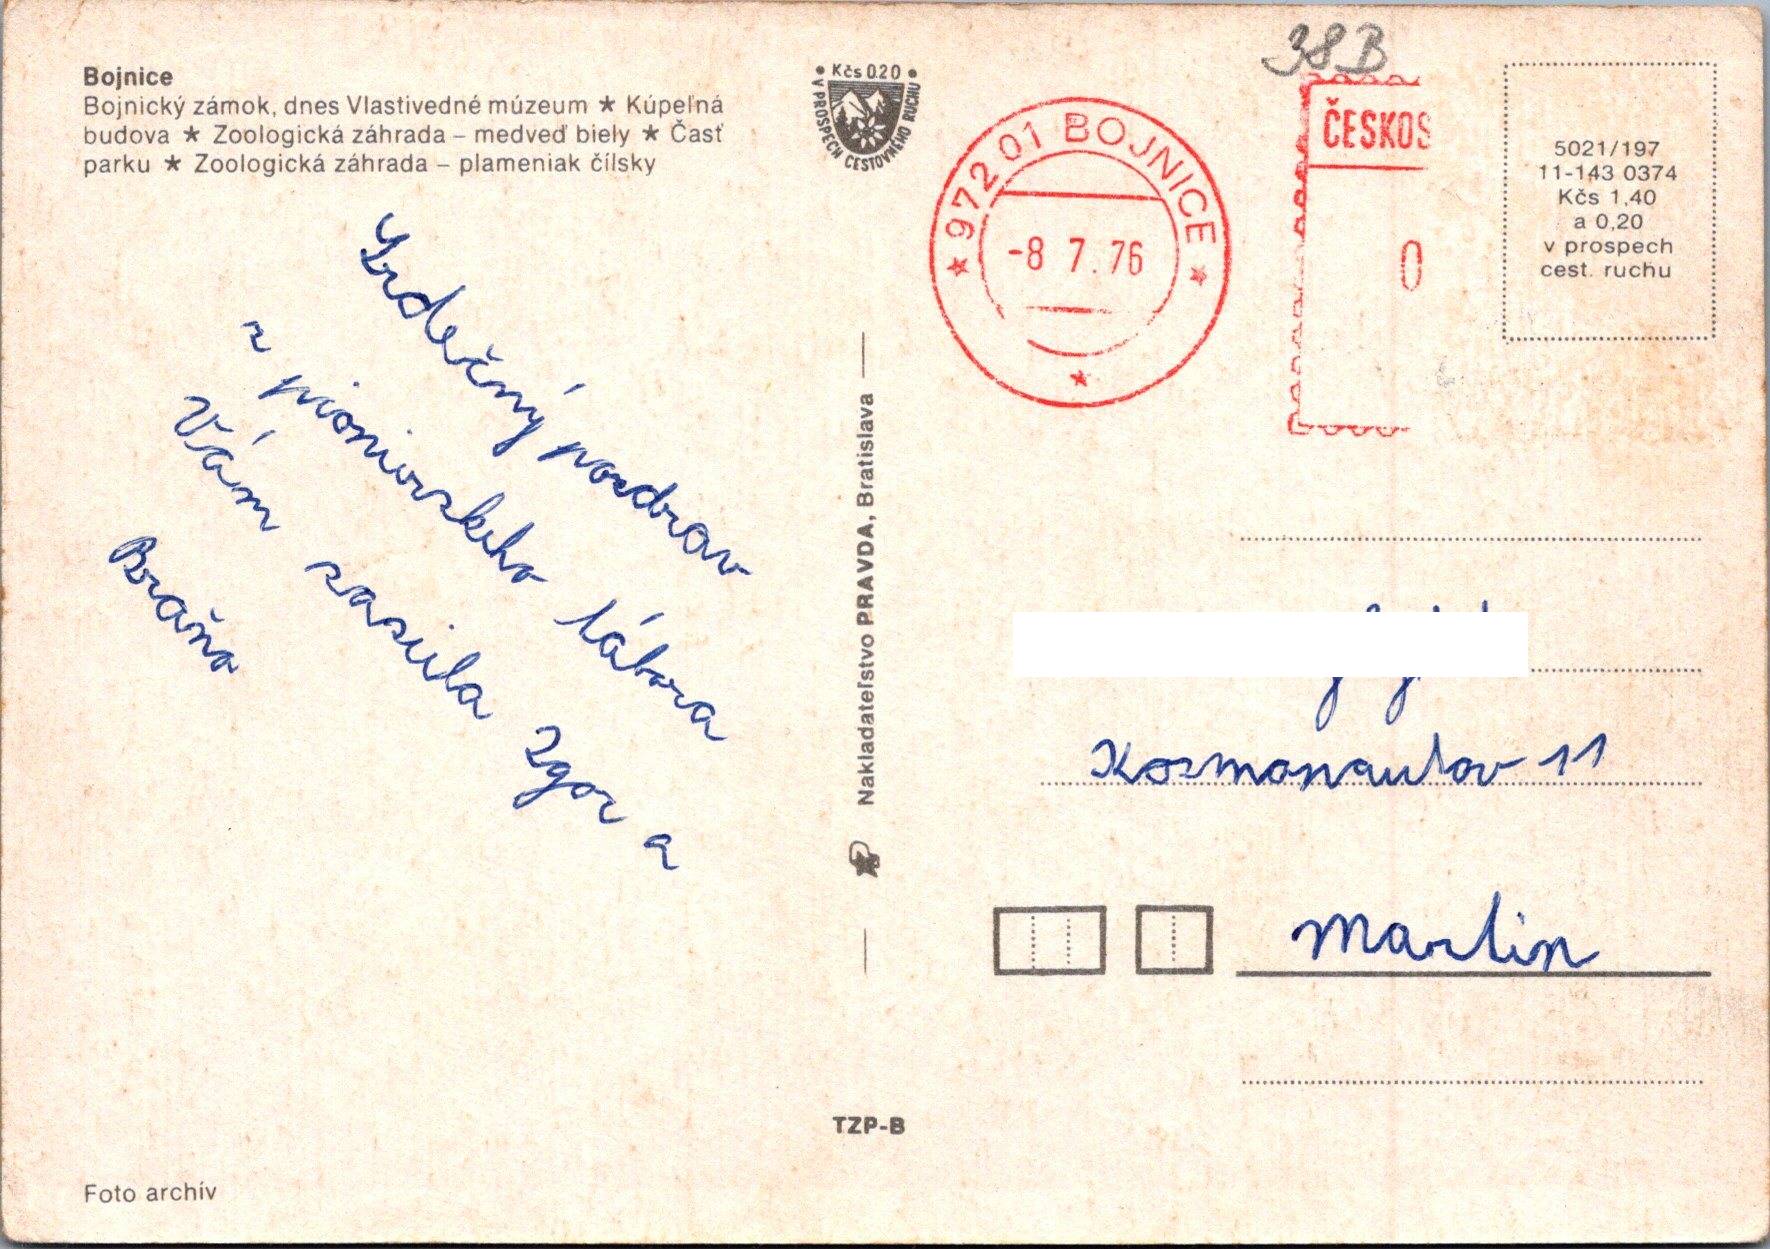 Bojnice
Bojnický zámok, dnes Vlastivedné múzeum ★ Kúpeľná
budova ★ Zoologická záhrada – medveď biely ★ Časť
parku ★ Zoologická záhrada – plameniak čílsky
• Kčs 0.20 •
V PROSPECH CESTOVNÉHO RUCHU
38B
★ 972 01 BOJNICE ★
-8 7.76
ČESKOS
0
5021/197
11-143 0374
Kčs 1,40
a 0,20
v prospech
cest. ruchu
Srdečný pozdrav
z pionierskeho tábora
Vám zasiela Igor a
Braňo
Nakladateľstvo PRAVDA, Bratislava
Kozmonautov 11
Martin
TZP-B
Foto archív